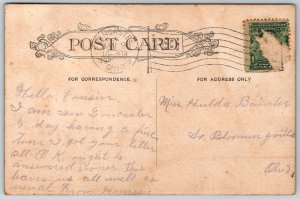 POST CARD
FOR CORRESPONDENCE
FOR ADDRESS ONLY
Hello Cousin
I am in Lancaster
to day having a fine
time I got your letter
all O.K. ought to
answered sooner this
leaves us all well as
usual from Homer
Mrs. Hulda
So. Bloomingville
Ohio